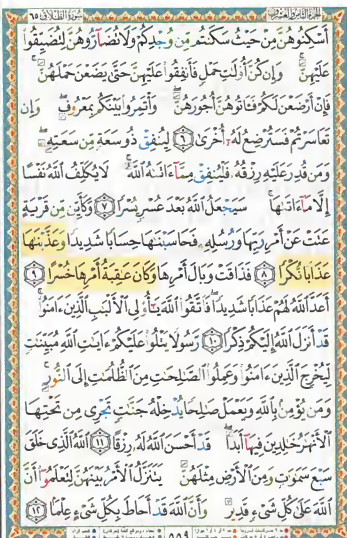 سورة الطلاق ٦٥
أَسْكِنُوهُنَّ مِنْ حَيْثُ سَكَنتُم مِّن وُجْدِكُمْ وَلَا تُضَآرُّوهُنَّ لِتُضَيِّقُوا۟
عَلَيْهِنَّ ۚ وَإِن كُنَّ أُو۟لَـٰتِ حَمْلٍ فَأَنفِقُوا۟ عَلَيْهِنَّ حَتَّىٰ يَضَعْنَ حَمْلَهُنَّ ۚ
فَإِنْ أَرْضَعْنَ لَكُمْ فَـَٔاتُوهُنَّ أُجُورَهُنَّ ۖ وَأْتَمِرُوا۟ بَيْنَكُم بِمَعْرُوفٍ ۖ وَإِن
تَعَاسَرْتُمْ فَسَتُرْضِعُ لَهُۥٓ أُخْرَىٰ ٦ لِيُنفِقْ ذُو سَعَةٍ مِّن سَعَتِهِۦ ۖ
وَمَن قُدِرَ عَلَيْهِ رِزْقُهُۥ فَلْيُنفِقْ مِمَّآ ءَاتَىٰهُ ٱللَّهُ ۚ لَا يُكَلِّفُ ٱللَّهُ نَفْسًا
إِلَّا مَآ ءَاتَىٰهَا ۚ سَيَجْعَلُ ٱللَّهُ بَعْدَ عُسْرٍ يُسْرًا ٧ وَكَأَيِّن مِّن قَرْيَةٍ
عَتَتْ عَنْ أَمْرِ رَبِّهَا وَرُسُلِهِۦ فَحَاسَبْنَـٰهَا حِسَابًا شَدِيدًا وَعَذَّبْنَـٰهَا
عَذَابًا نُّكْرًا ٨ فَذَاقَتْ وَبَالَ أَمْرِهَا وَكَانَ عَـٰقِبَةُ أَمْرِهَا خُسْرًا ٩
أَعَدَّ ٱللَّهُ لَهُمْ عَذَابًا شَدِيدًا ۖ فَٱتَّقُوا۟ ٱللَّهَ يَـٰٓأُو۟لِى ٱلْأَلْبَـٰبِ ٱلَّذِينَ ءَامَنُوا۟ ۚ
قَدْ أَنزَلَ ٱللَّهُ إِلَيْكُمْ ذِكْرًا ١٠ رَّسُولًا يَتْلُوا۟ عَلَيْكُمْ ءَايَـٰتِ ٱللَّهِ مُبَيِّنَـٰتٍ
لِّيُخْرِجَ ٱلَّذِينَ ءَامَنُوا۟ وَعَمِلُوا۟ ٱلصَّـٰلِحَـٰتِ مِنَ ٱلظُّلُمَـٰتِ إِلَى ٱلنُّورِ ۚ
وَمَن يُؤْمِنۢ بِٱللَّهِ وَيَعْمَلْ صَـٰلِحًا يُدْخِلْهُ جَنَّـٰتٍ تَجْرِى مِن تَحْتِهَا
ٱلْأَنْهَـٰرُ خَـٰلِدِينَ فِيهَآ أَبَدًا ۖ قَدْ أَحْسَنَ ٱللَّهُ لَهُۥ رِزْقًا ١١ ٱللَّهُ ٱلَّذِى خَلَقَ
سَبْعَ سَمَـٰوَٰتٍ وَمِنَ ٱلْأَرْضِ مِثْلَهُنَّ يَتَنَزَّلُ ٱلْأَمْرُ بَيْنَهُنَّ لِتَعْلَمُوٓا۟ أَنَّ
ٱللَّهَ عَلَىٰ كُلِّ شَىْءٍ قَدِيرٌ وَأَنَّ ٱللَّهَ قَدْ أَحَاطَ بِكُلِّ شَىْءٍ عِلْمًۢا ١٢
٥٥٩